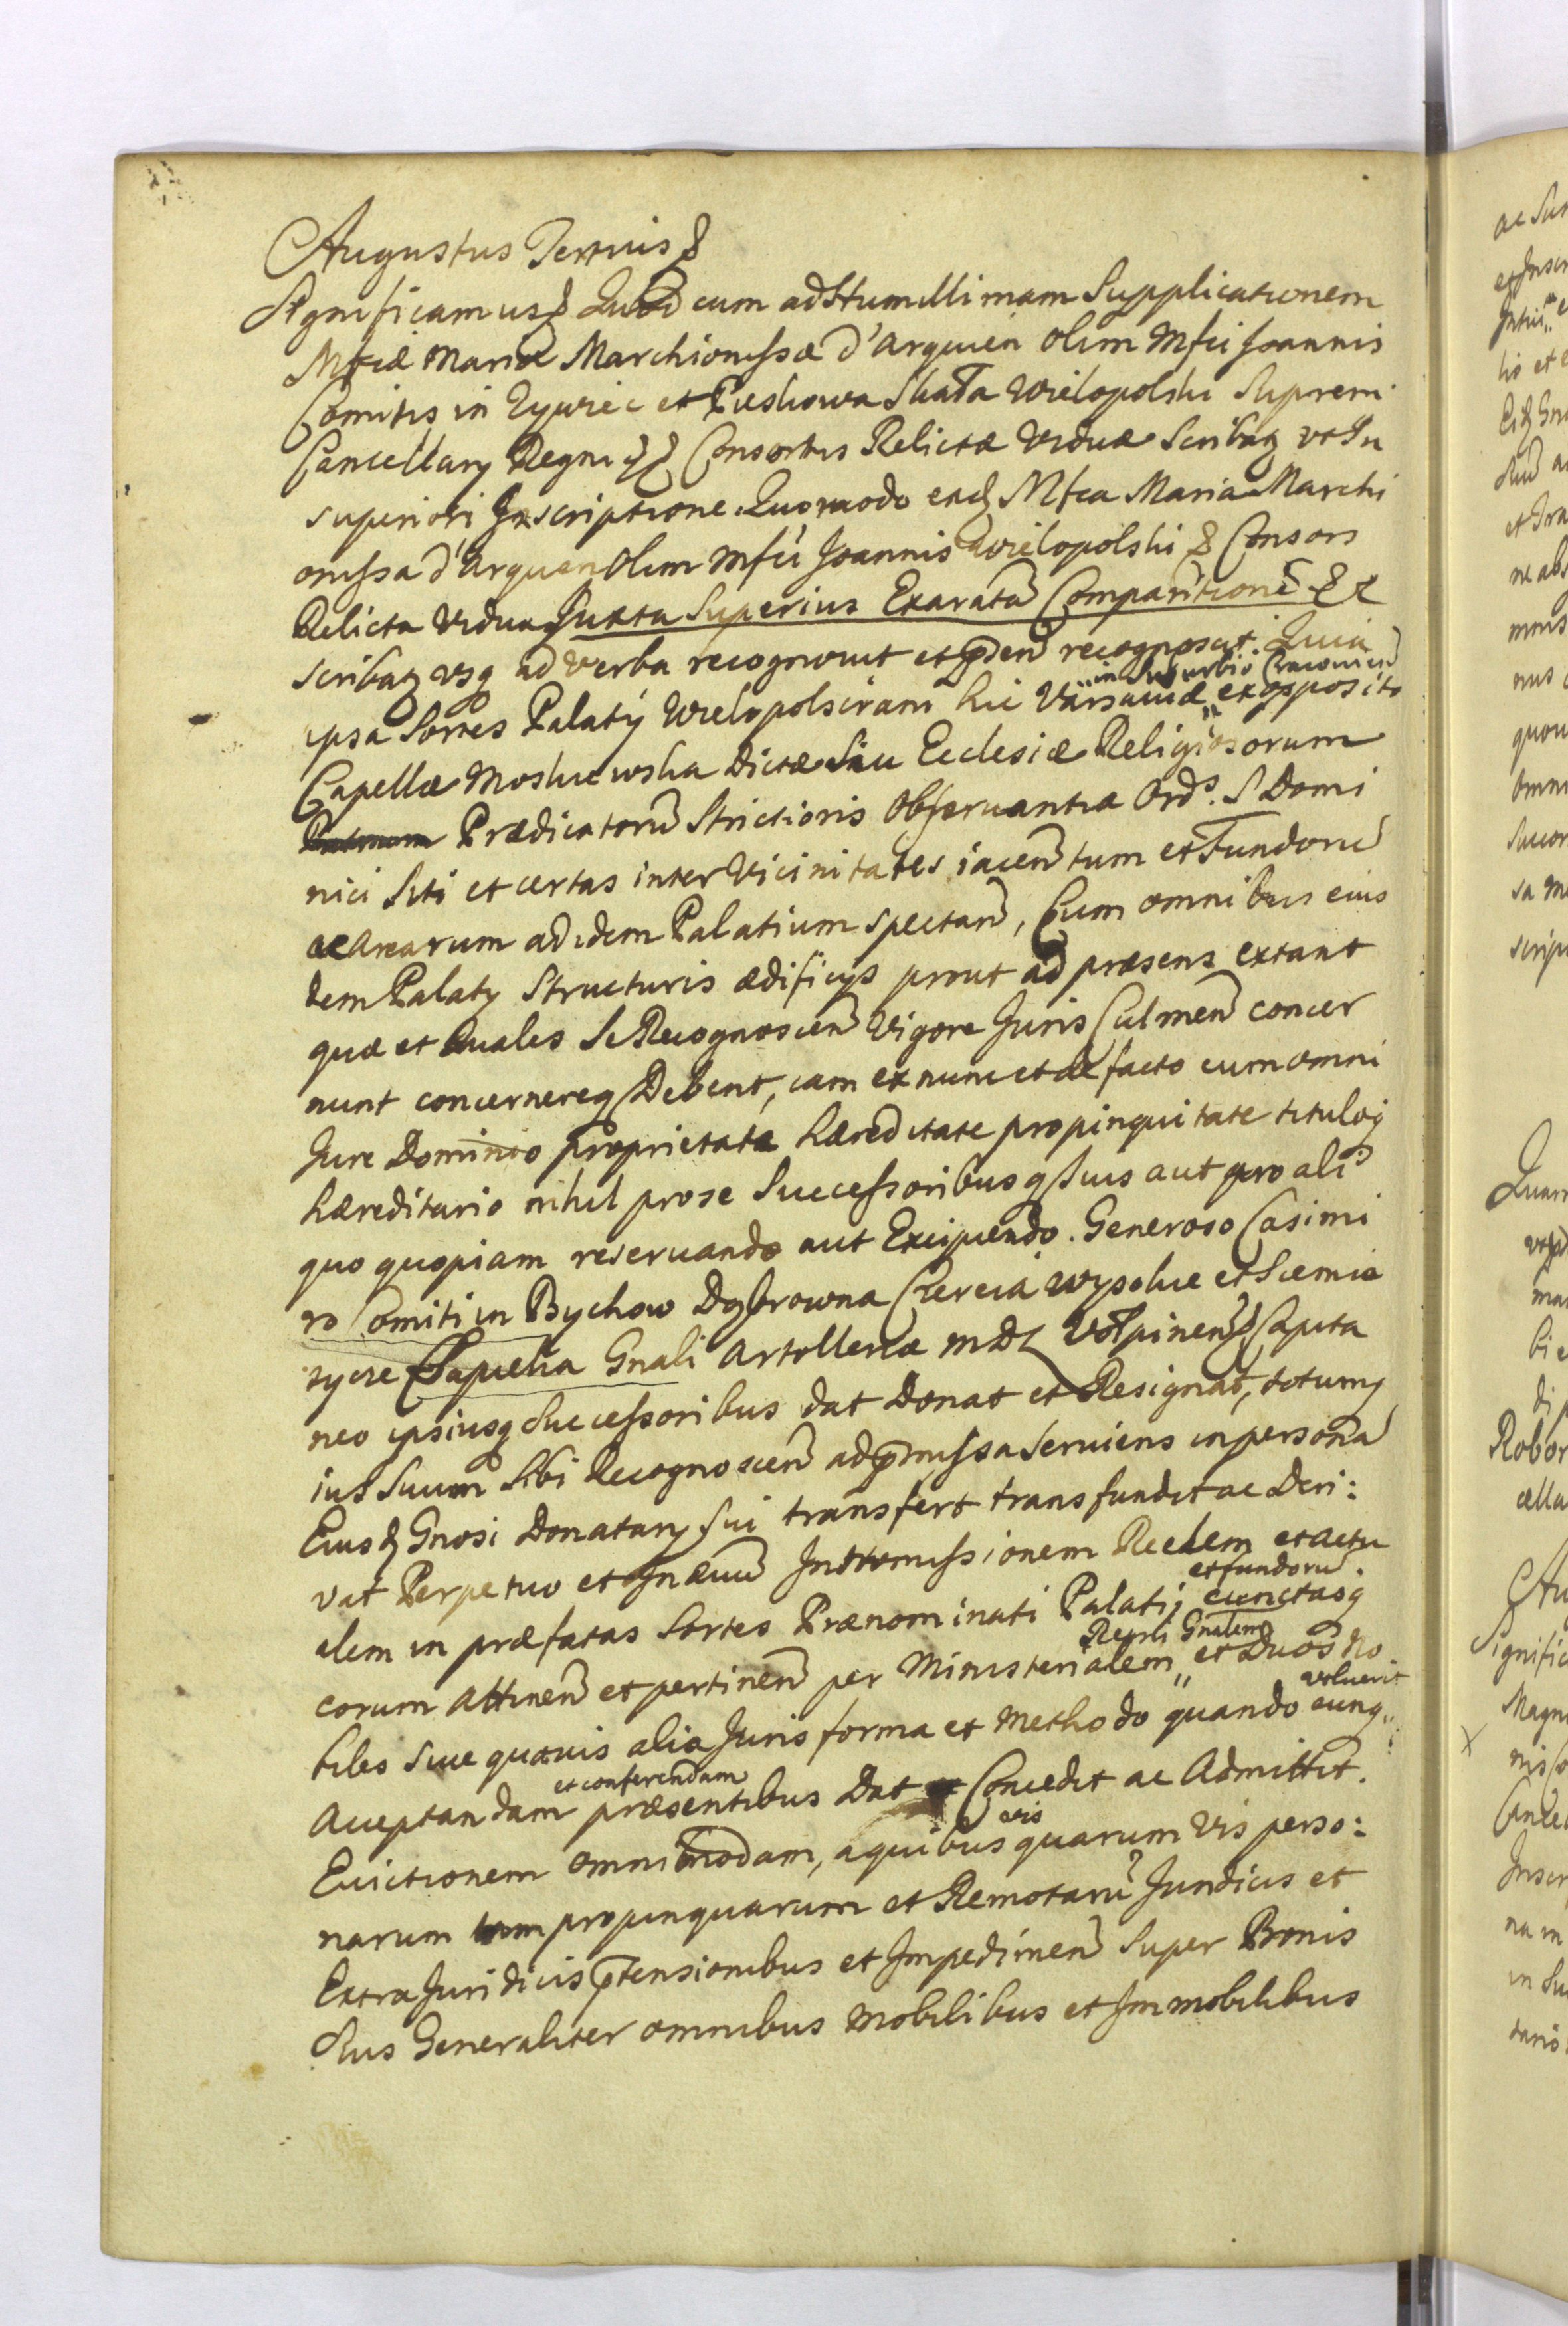 Augustus Tertius &
Significamus & Quod cum ad Humillimam Supplicationem
Mfcæ Mariæ Marchionissæ d'Arquien Olim Mfci Joannis
Comitis in Zywiec et Pieskowa Skała Wielopolski Supremi
Cancellarÿ Regni && Consortis Relictæ Viduæ Scribaq vt In
superiori Inscriptione. Quomodo eadq Mfca Maria Marchi
onissa d'Arquien Olim Mfci Joannis Wielopolski & Consors
Relicta Vidua Juxta Superius Exaratã Comparitionẽ &&
scribaq vsq ad Verba recognouit et p̃den recognoscit. Quia
ipsa Sortes Palatÿ Wielopolscianı hic Varsauiæ "in Suburbio Cracouien" ex opposito
Capellæ Moskiewska dictæ Siue Ecclesiæ Religiosorum
Prædicatorũ Strictioris Obseruantiæ Ordˢ. S Domi
nici Siti et certas inter Vicinitates iacen tum et Fundorũ
ac Arearum ad idem Palatium spectan, Cum omnibus eius
dem Palatÿ Structuris ædificÿs prout ad præsens extant
quæ et quales Se Recognoscen Vigore Juris Culmen concer
nunt concernereq Debent, iam ex nunc et de facto cum omni
Jure Dominio proprietate hæreditate propinquitate tituloq
hæreditario nihil pro se Successoribusq Suis aut pro ali
quo quopiam reseruando aut Excipiendo. Generoso Casimi
ro Comiti in Bychow Dąbrowna Czereia Wysokie et Siemia
tycze Sapieha Gnali Artolleriæ MDL Volpinen & Capita
neo ipsiusq Successoribus dat Donat et Resignat, totumq
ius Suum Sibi Recognoscen ad p̃missa Seruiens in personã
Eiusdq Gnosi Donatarÿ Sui transfert transfundit ac Deri:
vat Perpetuo et In æuũ Intromissionem Realem et actu
alem in præfatas Sortes Prænominati Palatij et fundorũ cunctasq
eorum Attinen et pertinen per Ministerialem Regni Gnalem et Duos No
biles Siue quouis alia Juris forma et Methodo quando cunq voluerit
Acceptandam et conferendam præsentibus Dat Concedit ac Admittit.
Euictionem omnimodam, a quibusuis quarumvis perso:
narum tam propinquarum et Remotarũ Juridicis et
Extra Juridicis p̃tensionibus et Impedimen Super Bonis
Suis Generaliter omnibus Mobilibus et Immobilibus